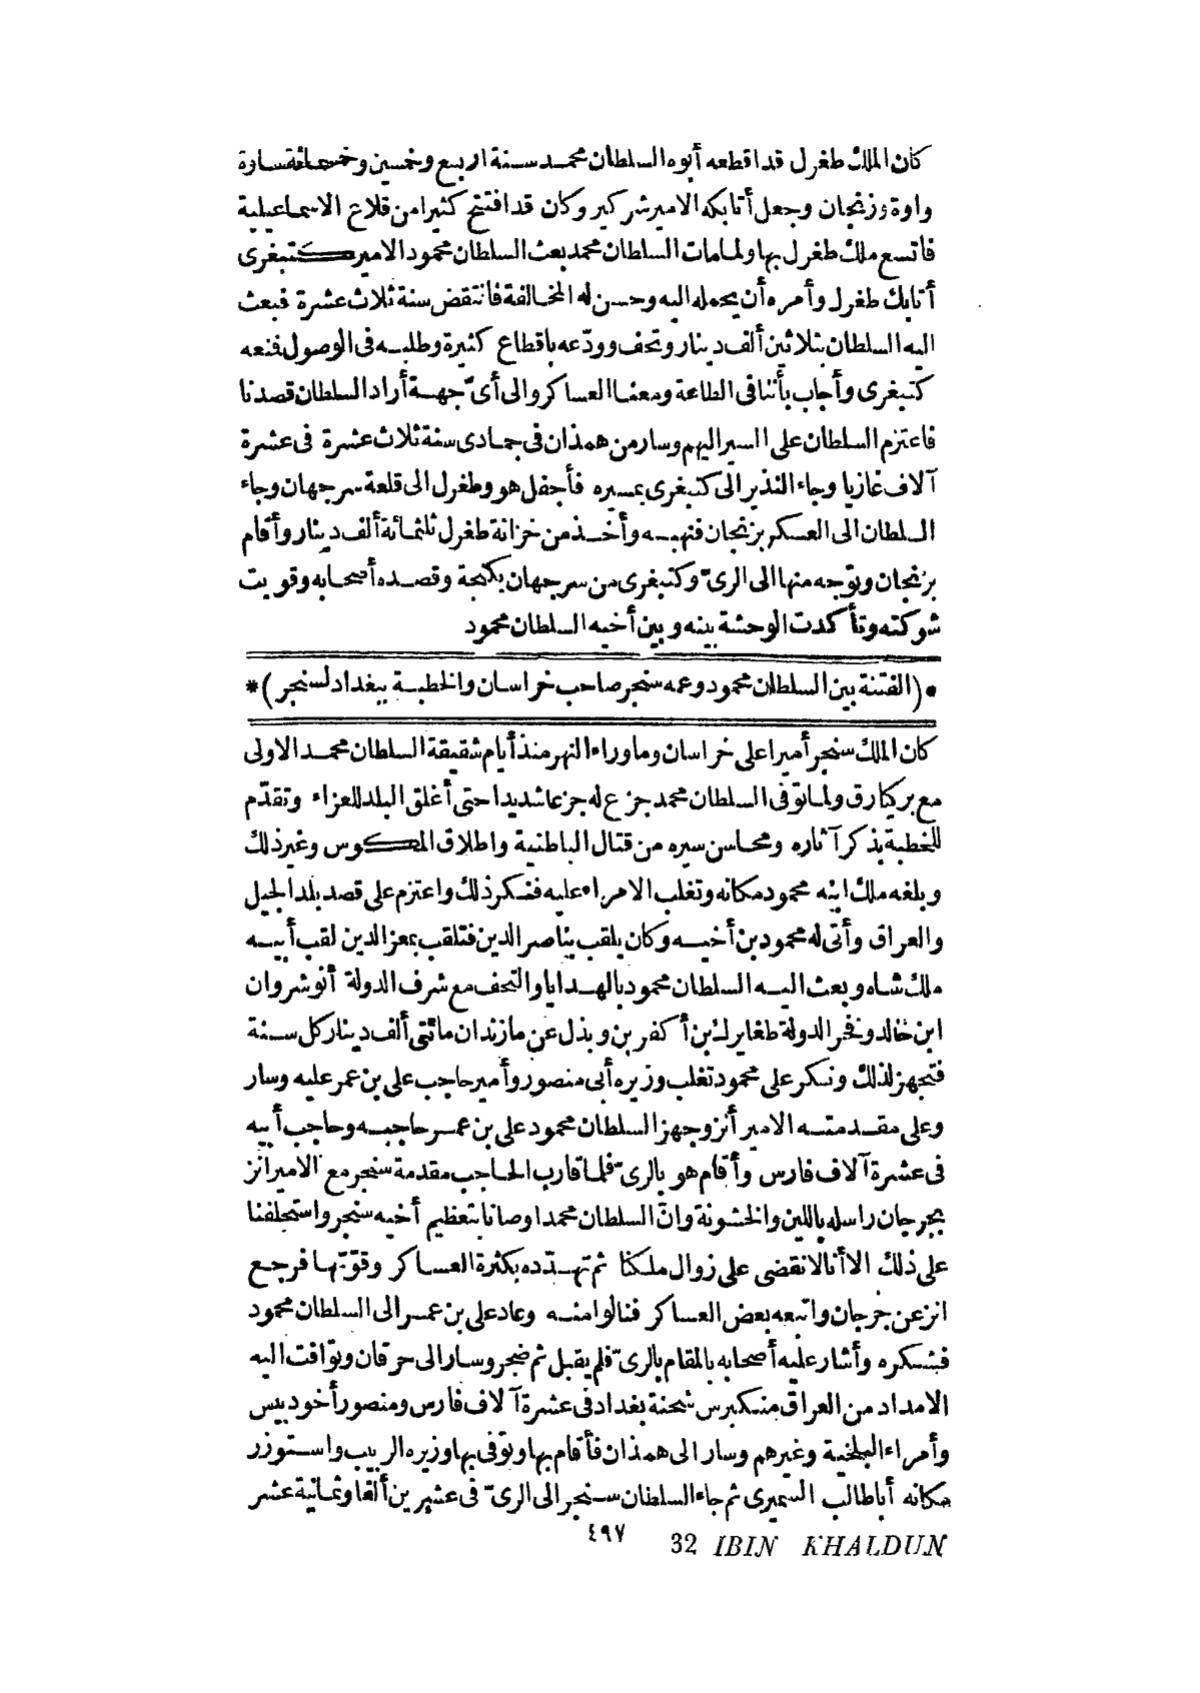 كان الملك طغرل قد اقطعه أبوه السلطان محمد سنة اربع وخمسين وخمسمائة ساوة
واوة وزنجان وجعل أتابكه الامير شركير وكان قد افتتح كثيرا من قلاع الاسماعيلية
فاتسع ملك طغرل بها ولمامات السلطان محمد بعث السلطان محمود الامير كتبغرى
أتابك طغرل وأمره أن يحمله اليه وحسن له المخالفة فانتقض سنة ثلاث عشرة فبعث
اليه السلطان بثلاثين ألف دينار وتحف وودّعه باقطاع كثيرة وطلبه فى الوصول فنعه
كتبغرى وأجاب بأننا فى الطاعة ومعنا العساكر والى أىّ جهة أراد السلطان قصدنا
فاعتزم السلطان على السير اليهم وسار من همذان فى جمادى سنة ثلاث عشرة فى عشرة
آلاف غازيا وجاء النذير الى كتبغرى بمسيره فأجفل هو وطغرل الى قلعة سرجهان وجاء
السلطان الى العسكر بزنجان فنهبه وأخذ من خزانة طغرل ثلثمائة ألف دينار وأقام
بزنجان وتوجه منها الى الرىّ وكتبغرى من سرجهان بكنجة وقصده أصحابه وقويت
شوكته وتأكدت الوحشة بينه وبين أخيه السلطان محمود
*(الفتنة بين السلطان محمود وعمه سنجر صاحب خراسان والخطبة ببغداد لسنجر)*
كان الملك سنجر أميرا على خراسان وما وراء النهر منذ أيام شقيقة السلطان محمد الاولى
مع بركيارق ولما توفى السلطان محمد جزع له جزعا شديدا حتى أغلق البلد للعزاء وتقدّم
للخطبة بذكر آثاره ومحاسن سيره من قتال الباطنية واطلاق المكوس وغير ذلك
وبلغه ملك ابنه محمود مكانه وتغلب الامراء عليه فنكر ذلك واعتزم على قصد بلد الجبل
والعراق وأتى له محمود بن أخيه وكان يلقب بناصر الدين فتلقب بمعز الدين لقب أبيه
ملك شاه وبعث اليه السلطان محمود بالهدايا والتحف مع شرف الدولة أنوشروان
ابن خالد وفخر الدولة طغايرك بن أكفر بن وبذل عن مازندان مائتى ألف دينار كل سنة
فتجهز لذلك ونكر على محمود تغلب وزيره أبى منصور وأمير حاجب على بن عمر عليه وسار
وعلى مقدمته الامير أنز وجهز السلطان محمود على بن عمر حاجبه وحاجب أبيه
فى عشرة آلاف فارس وأقام هو بالرىّ فلما قارب الحاجب مقدمة سنجر مع الامير انز
بجرجان راسله باللين والخشونة وانّ السلطان محمدا وصانا بتعظيم أخيه سنجر واستحلفنا
على ذلك الا أنا لا نقضى على زوال ملكنا ثم تهدّده بكثرة العساكر وقوّتها فرجع
انز عن جرجان واتبعه بعض العساكر فنالوا منه وعاد على بن عمر الى السلطان محمود
فشكره وأشار عليه أصحابه بالمقام بالرىّ فلم يقبل ثم ضجر وسار الى حرقان وتوافت اليه
الامداد من العراق منكبرس شحنة بغداد فى عشرة آلاف فارس ومنصور أخو دبيس
وأمراء البلخية وغيرهم وسار الى همذان فأقام بها وتوفى بها وزيره الربيب واستوزر
مكانه أبا طالب السميرى ثم جاء السلطان سنجر الى الرىّ فى عشرين ألفا وثمانية عشر
٤٩٧ 32 IBIN KHALDUN